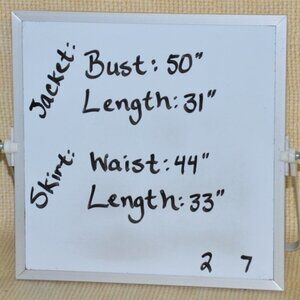 Jacket:
Bust: 50"
Length: 31"
Skirt:
Waist: 44"
Length: 33"
2 7